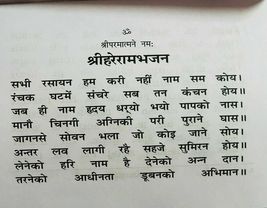 ॐ
श्रीपरमात्मने नमः
श्रीहरेरामभजन
सभी रसायन हम करी नहीं नाम सम कोय।
रंचक घटमें संचरे सब तन कंचन होय॥
जब ही नाम हृदय धर्‌यो भयो पापको नास।
मानी चिनगी अग्निकी परी पुराने घास॥
जागनसे सोवन भला जो कोइ जाने सोय।
अन्तर लव लागी रहे सहजे सुमिरन होय॥
लेनेको हरि नाम है देनेको अन्न दान।
तरनेको आधीनता डूबनको अभिमान॥